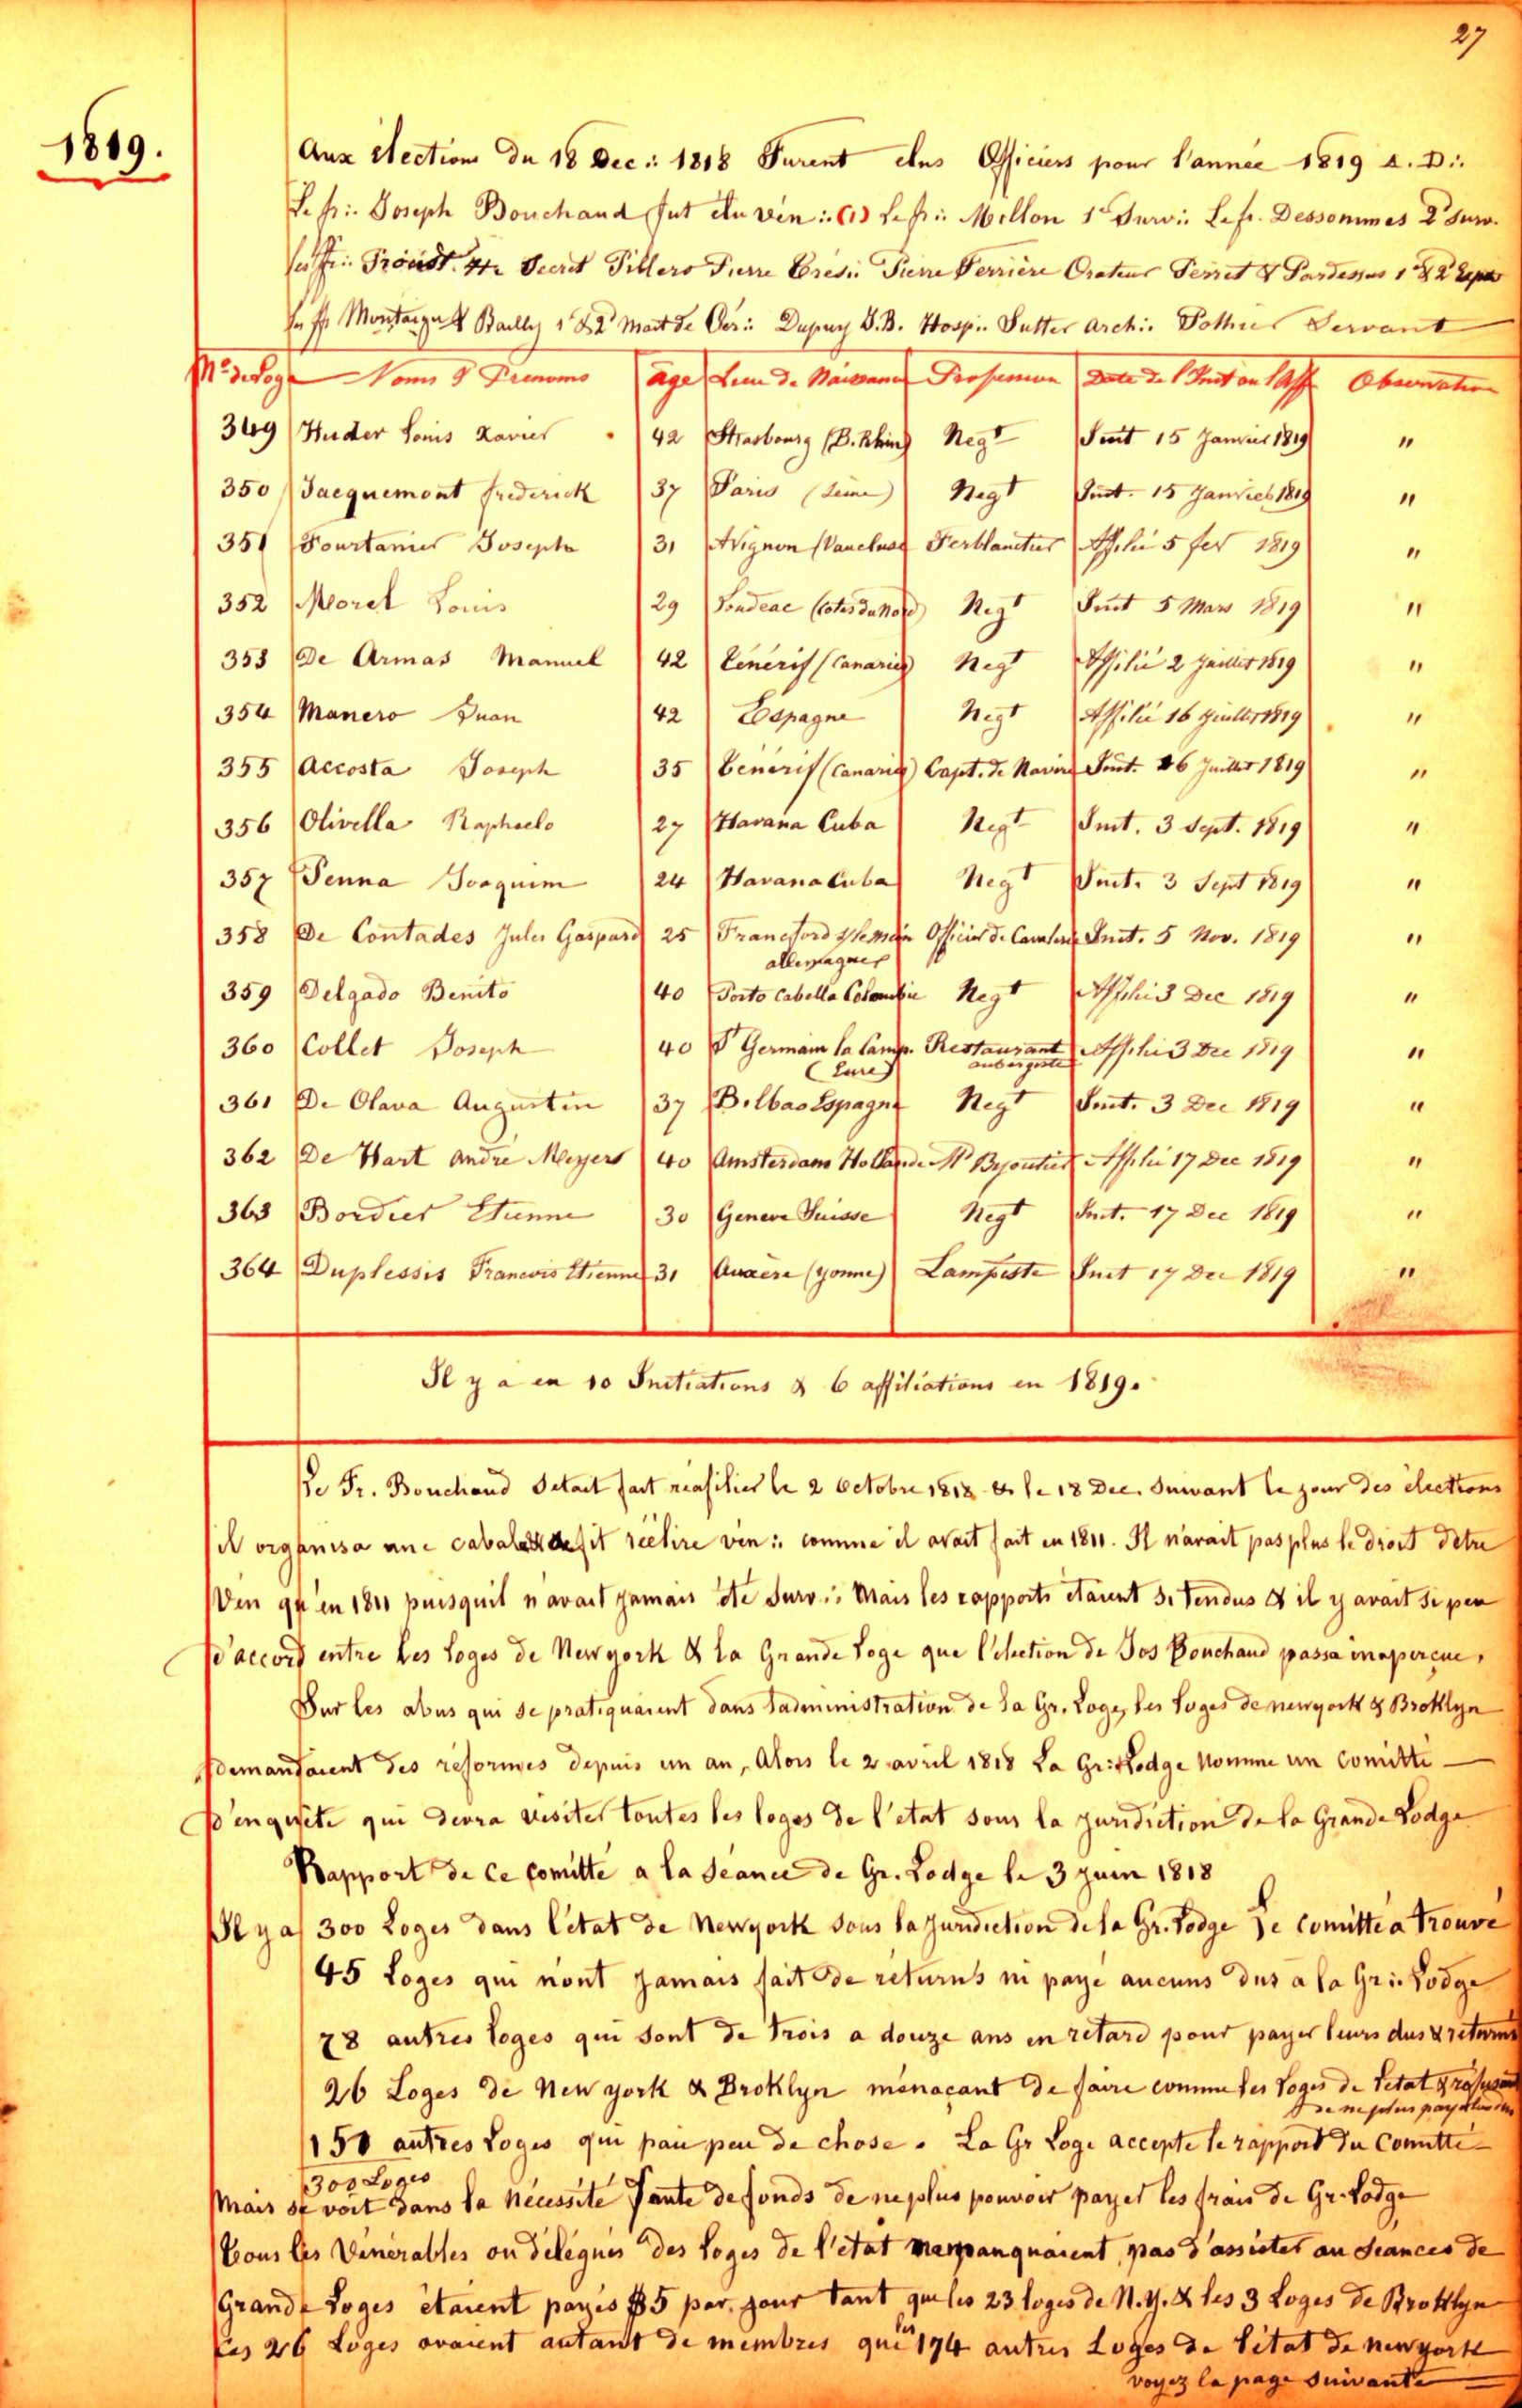 27
1819.
Aux élections du 18 Dec∴ 1818 Furent elus Officiers pour l'année 1819 A. D∴
Le fr∴ Joseph Bouchaud fut élu vén∴ (1) Le fr∴ Millon 1er Surv∴ Le fr. Dessommes 2d Surv.
Les ff∴ Secret Pillero Pierre Trés∴ Pierre Ferrière Orateur Perret & Pardessus 1 & 2d
les ff Montaigu & Bailly 1 & 2d Mait de Cér∴ Dupuy J.B. Hosp∴ Sutter Archi∴ Pothier Servant
No de Loge Noms & Prenoms age Lieu de Naissance Profession Date de l'Init ou l'Aff Observation
349 Huder Louis Xavier 42 Strasbourg (B. Rhin) Negt Init 15 Janvier 1819 "
350 Jacquemont frederick 37 Paris (Seine) Negt Init. 15 Janvier 1819 "
351 Fourtanier Joseph 31 Avignon (Vaucluse Ferblanctier Affilié 5 fev 1819 "
352 Morel Louis 29 Loudeac (Cotes du Nord) Negt Init 5 Mars 1819 "
353 De Armas Manuel 42 Ténérif (Canaries) Negt Affilié 2 Juillet 1819 "
354 Manero Juan 42 Espagne Negt Affilié 16 Juillet 1819 "
355 Accosta Joseph 35 Ténérif (Canaries) Capt. de Navire Init. 16 Juillet 1819 "
356 Olivella Raphaelo 27 Havana Cuba Negt Init. 3 Sept. 1819 "
357 Penna Joaquim 24 Havana Cuba Negt Init. 3 Sept 1819 "
358 De Contades Jules Gaspard 25 Francford s/le Mein Officier de Cavalerie Init. 5 Nov. 1819 "
allemagne
359 Delgado Benito 40 Porto Cabella Colombie Negt Affilié 3 Dec 1819 "
360 Collet Joseph 40 St Germain la Camp. Restaurant Affilié 3 Dec 1819 "
(Eure) aubergiste
361 De Olava Augustin 37 Bilbao Espagne Negt Init. 3 Dec 1819 "
362 De Hart André Meyers 40 Amsterdam Hollande Md Bijoutier Affilié 17 Dec 1819 "
363 Bordier Etienne 30 Geneve Suisse Negt Init. 17 Dec 1819 "
364 Duplessis Francois Etienne 31 Auxère (Yonne) Lampiste Init 17 Dec 1819 "
Il y a eu 10 Initiations & 6 affiliations en 1819.
Le Fr. Bouchaud s'etait fait réafilier le 2 Octobre 1818 & le 18 Dec. suivant le jour des élections
il organisa une cabale & se fit réélire vén∴ comme il avait fait en 1811. Il n'avait pas plus le droit d'etre
Ven qu'en 1811 puisquil n'avait jamais été Surv∴ Mais les rapports étaient si tendus & il y avait si peu
d'accord entre les Loges de New york & la Grande Loge que l'élection de Jos Bouchaud passa inaperçue,
Sur les abus qui se pratiquaient dans l'administration de la Gr. Loge, les Loges de newyork & Broklyn
demandaient des réformes depuis un an, Alors le 2 avril 1818 La Gr∴ Lodge Nomme un Comitté
d'enquéte qui devra visiter toutes les loges de l'etat sous la juridiction de la Grande Lodge
Rapport de Ce Comitté a la Séance de Gr. Lodge le 3 juin 1818
Il y a 300 Loges dans l'état de Newyork sous la juridiction de la Gr. Lodge Le Comitté a trouvé
45 Loges qui n'ont jamais fait de returns ni payé aucuns dus a la Gr∴ Lodge
78 autres loges qui sont de trois a douze ans en retard pour payer leurs dus & returns
26 Loges de New york & Broklyn ménaçant de faire comme les Loges de l'etat & refusant
de ne plus payer leur dus
151 autres Loges qui paie peu de chose. La Gr Loge accepte le rapport du Comitté
300 Loges
Mais se voit dans la nécessité faute de fonds de ne plus pouvoir payer les frais de Gr. Lodge
Tous les Vénérables ou délégués des Loges de l'état manquaient pas d'assister au Séances de
Grande Loges étaient payés $5 par jour tant que les 23 loges de N.Y. & les 3 Loges de Broklyn
Ces 26 Loges avaient autant de membres que les 174 autres Loges de l'état de newyork
voyez la page suivante